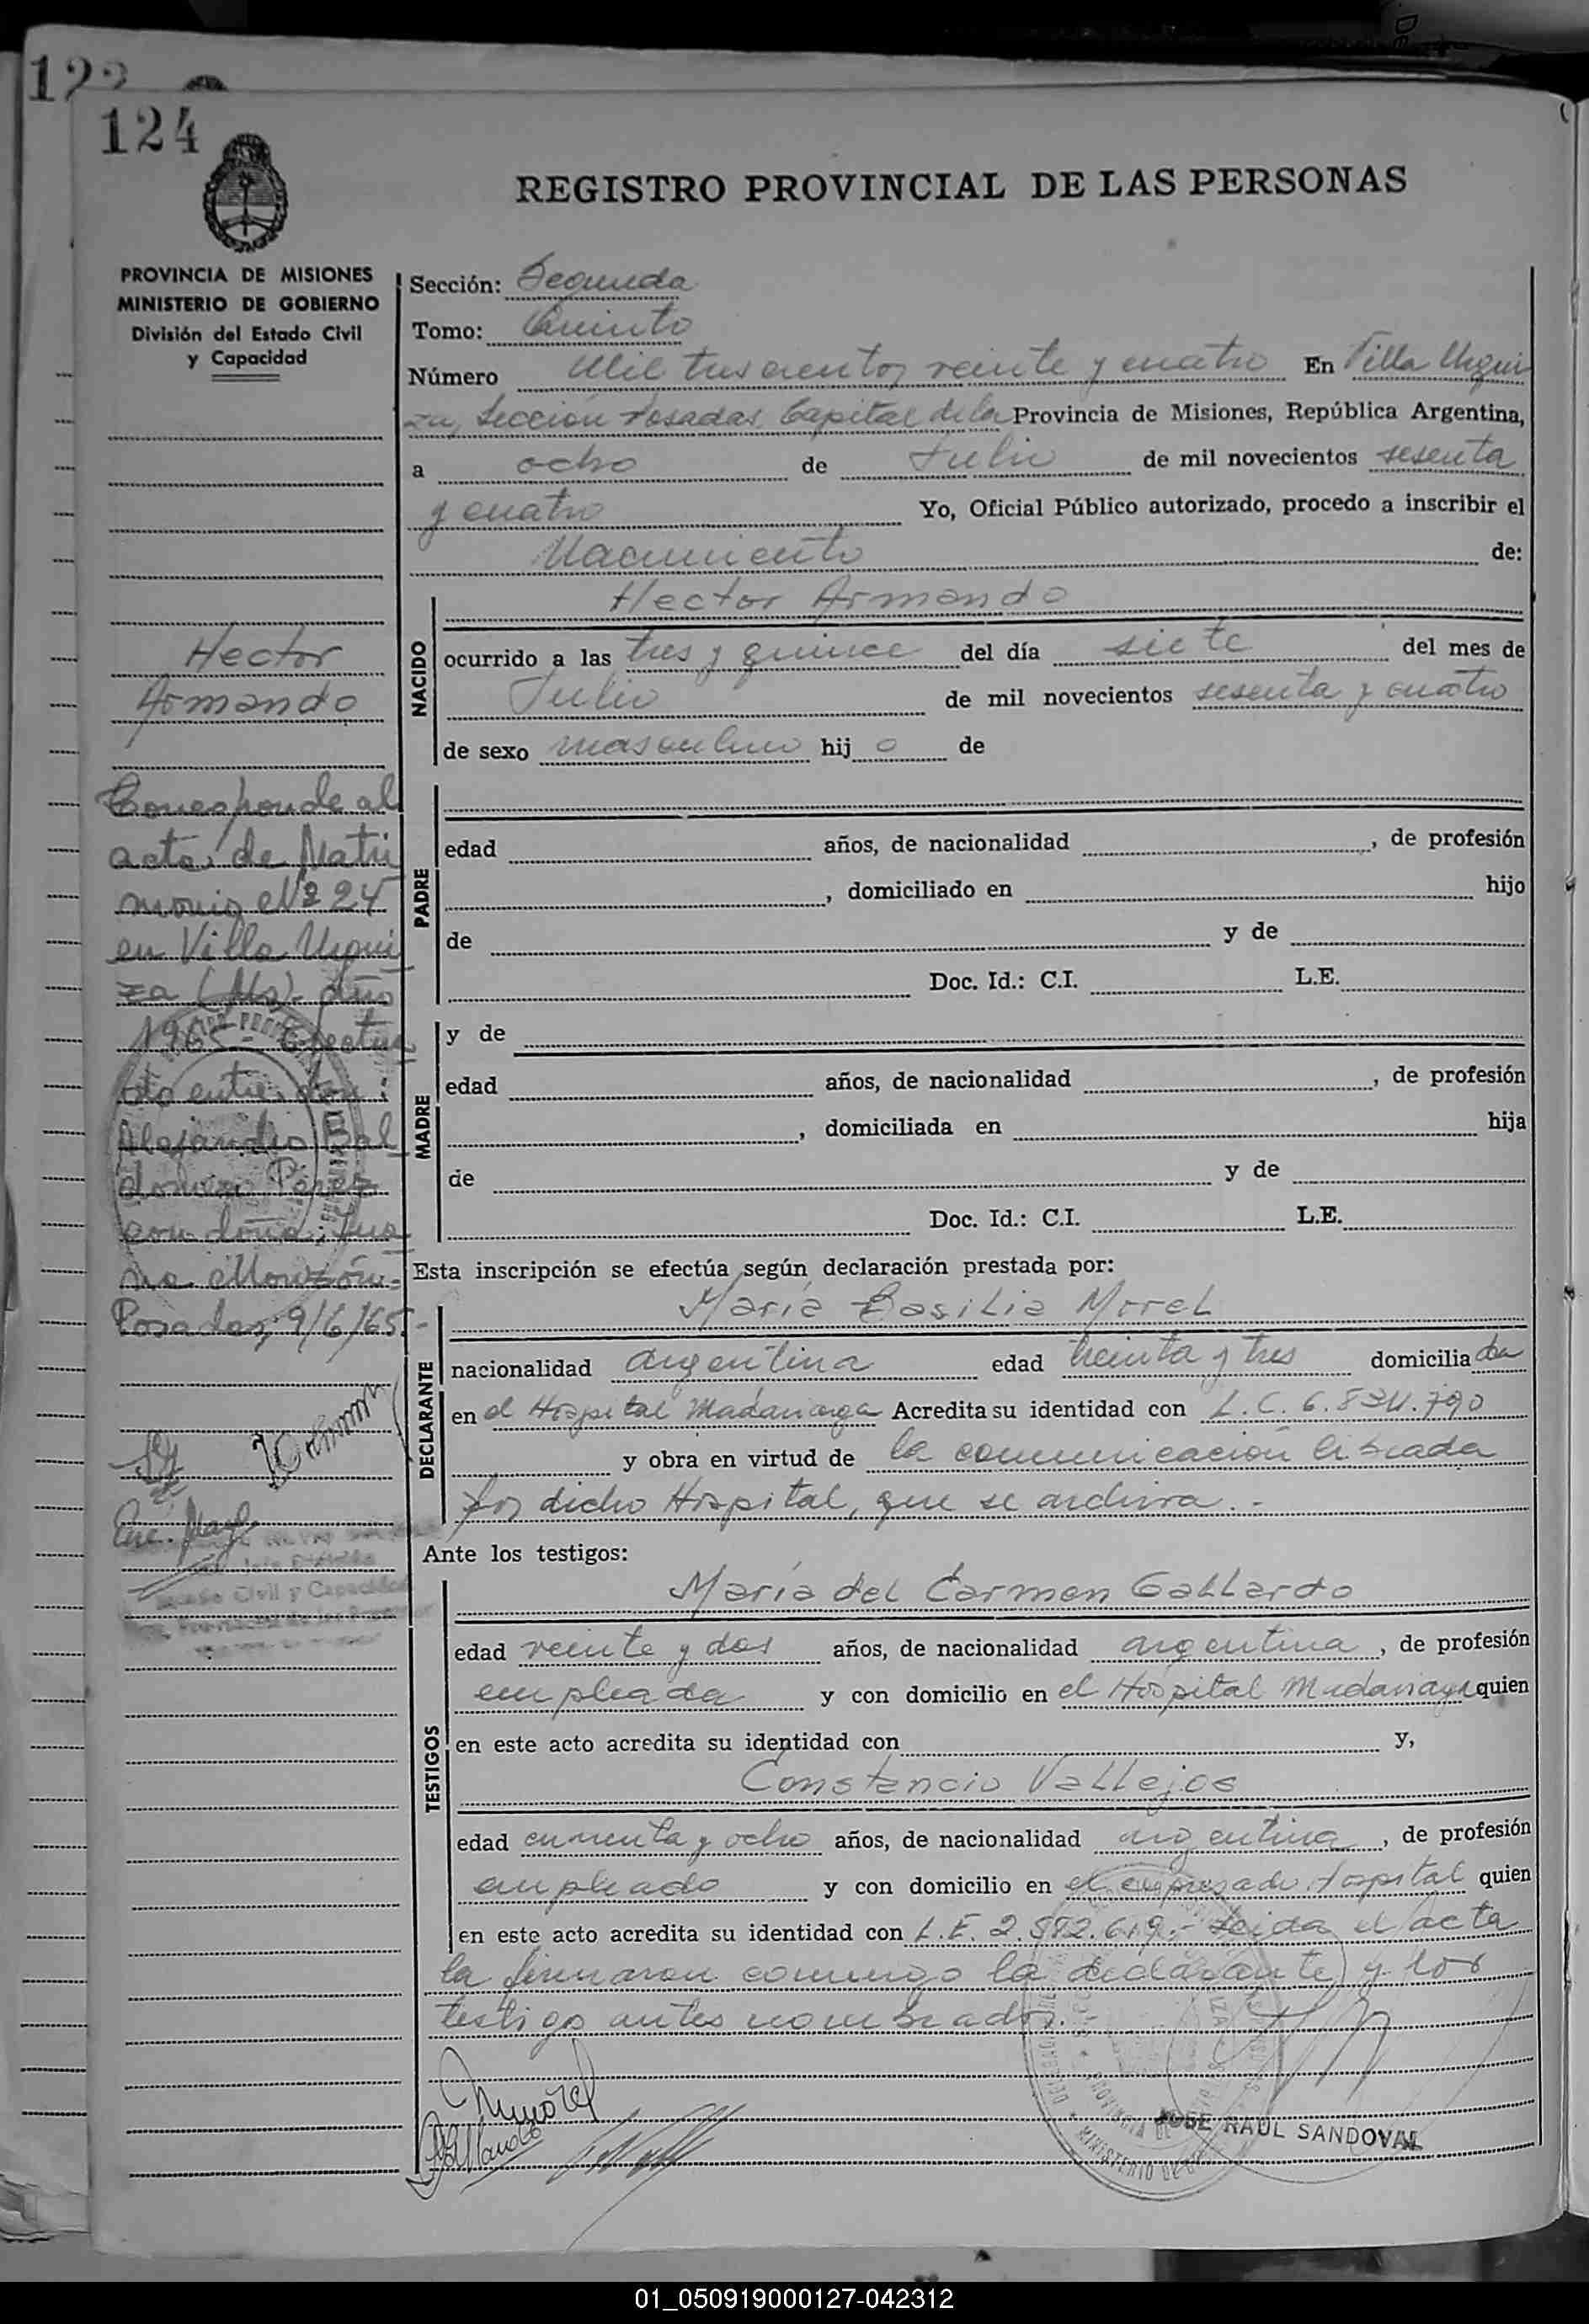 122
124
REGISTRO PROVINCIAL DE LAS PERSONAS
PROVINCIA DE MISIONES
MINISTERIO DE GOBIERNO
División del Estado Civil
y Capacidad
Sección: Segunda
Tomo: Quinto
Número Mil trescientos veinte y cuatro En Villa Urqui
za, Sección Posadas, Capital de la Provincia de Misiones, República Argentina,
a ocho de Julio de mil novecientos sesenta
y cuatro Yo, Oficial Público autorizado, procedo a inscribir el
Nacimiento de:
NACIDO
Hector Armando
ocurrido a las tres y quince del día siete del mes de
Julio de mil novecientos sesenta y cuatro
de sexo masculino hijo de
Hector
Armando
Corresponde al
acta de Matri
monio Nº 24
en Villa Urqui
za (Ms). año
1965 - efectua
do entre don:
Alejandro Bal
domero Pérez
con doña: Jua
na Monzón.-
Posadas, 9/6/65.-
PADRE
edad años, de nacionalidad , de profesión
, domiciliado en hijo
de y de
Doc. Id.: C.I. L.E.
MADRE
y de
edad años, de nacionalidad , de profesión
, domiciliada en hija
de y de
Doc. Id.: C.I. L.E.
Esta inscripción se efectúa según declaración prestada por:
DECLARANTE
María Basilia Morel
nacionalidad argentina edad treinta y tres domiciliada
en el Hospital Madariaga Acredita su identidad con L.C. 6.834.790
y obra en virtud de la comunicación librada
por dicho Hospital, que se archiva.-
Estado Civil y Capacidad
Ante los testigos:
TESTIGOS
María del Carmen Gallardo
edad veinte y dos años, de nacionalidad argentina, de profesión
empleada y con domicilio en el Hospital Madariaga quien
en este acto acredita su identidad con y,
Constancio Vallejos
edad cincuenta y ocho años, de nacionalidad argentina, de profesión
empleado y con domicilio en el expresado Hospital quien
en este acto acredita su identidad con L.E. 2.582.619.- Leida el acta
la firmaron conmigo la declarante y los
testigo antes nombrados.-
JOSE RAUL SANDOVAL
01_050919000127-042312